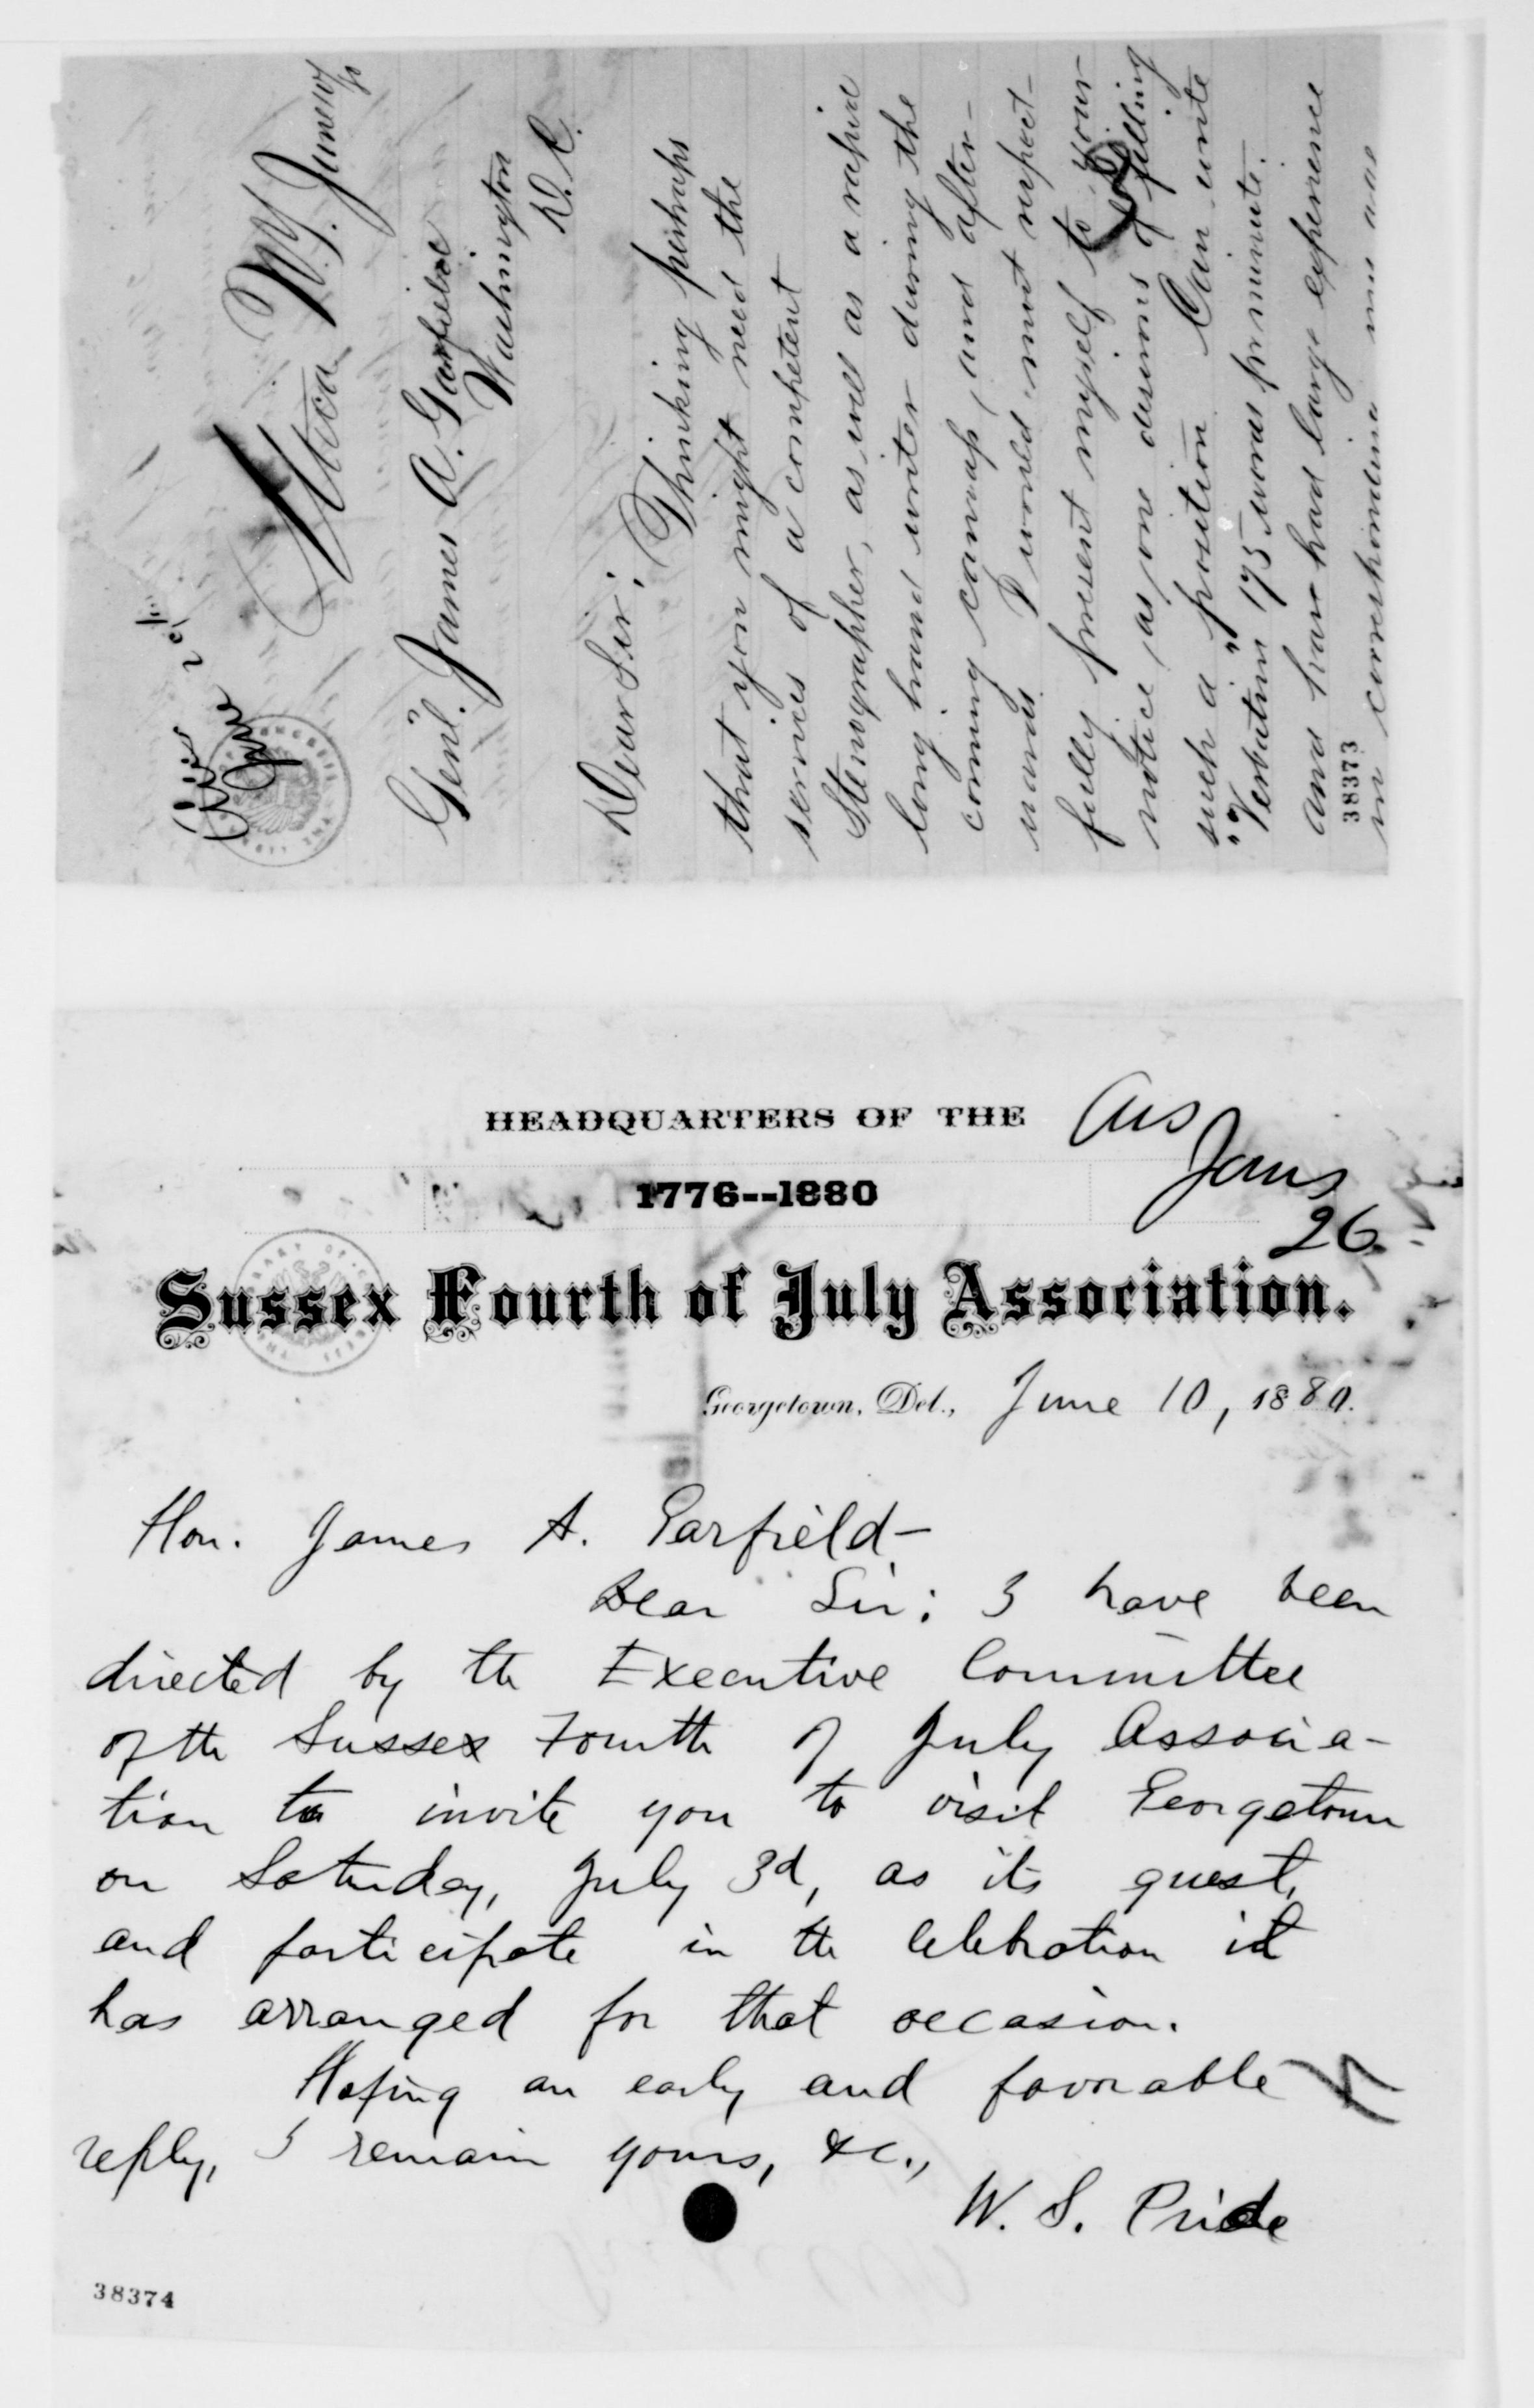 Ans
June 20th
Utica N.Y. June 10th/80
Genl. James A. Garfield
Washington
D.C.
Dear Sir; Thinking perhaps
that you might need the
services of a competent
Stenographer, as well as a rapid
long hand writer during the
coming canvass, and after-
wards I would most respect-
fully present myself to your
notice, as one desirous of filling
such a position. Can write
"Verbatim" 175 words per minute.
and have had large experience
38373
in corresponding
HEADQUARTERS OF THE
Ans
1776--1880
26
Sussex Fourth of July Association.
Georgetown, Del., June 10, 1880.
Hon. James A. Garfield-
Dear Sir: I have been
directed by the Executive Committee
of the Sussex Fourth of July Associa-
tion to invite you to visit Georgetown
on Saturday, July 3d, as its guest,
and participate in the celebration it
has arranged for that occasion.
Hoping an early and favorable
reply, I remain yours, &c.,
W. S. Pride
38374